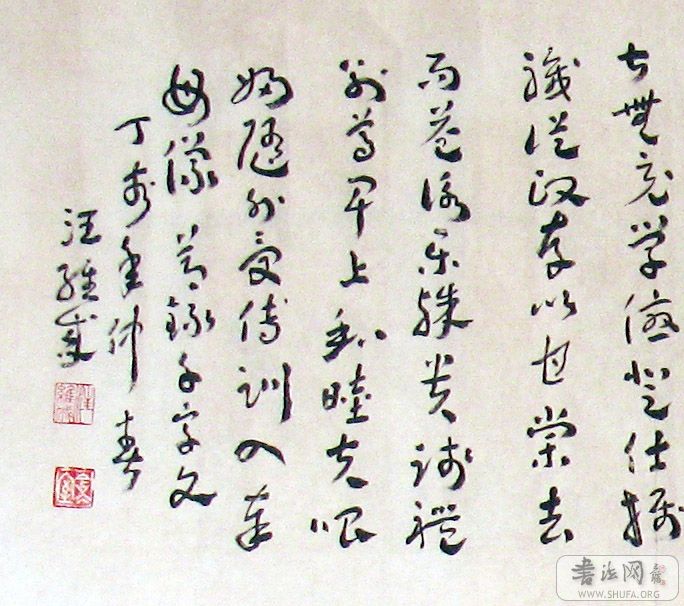 甚無竟學優登仕攝
職從政存以甘棠去
而益詠樂殊貴賤禮
別尊卑上和睦夫唱
婦隨外受傅訓入奉
母儀 節錄千字文
丁亥年仲春
汪維
書法网
WWW.SHUFA.ORG